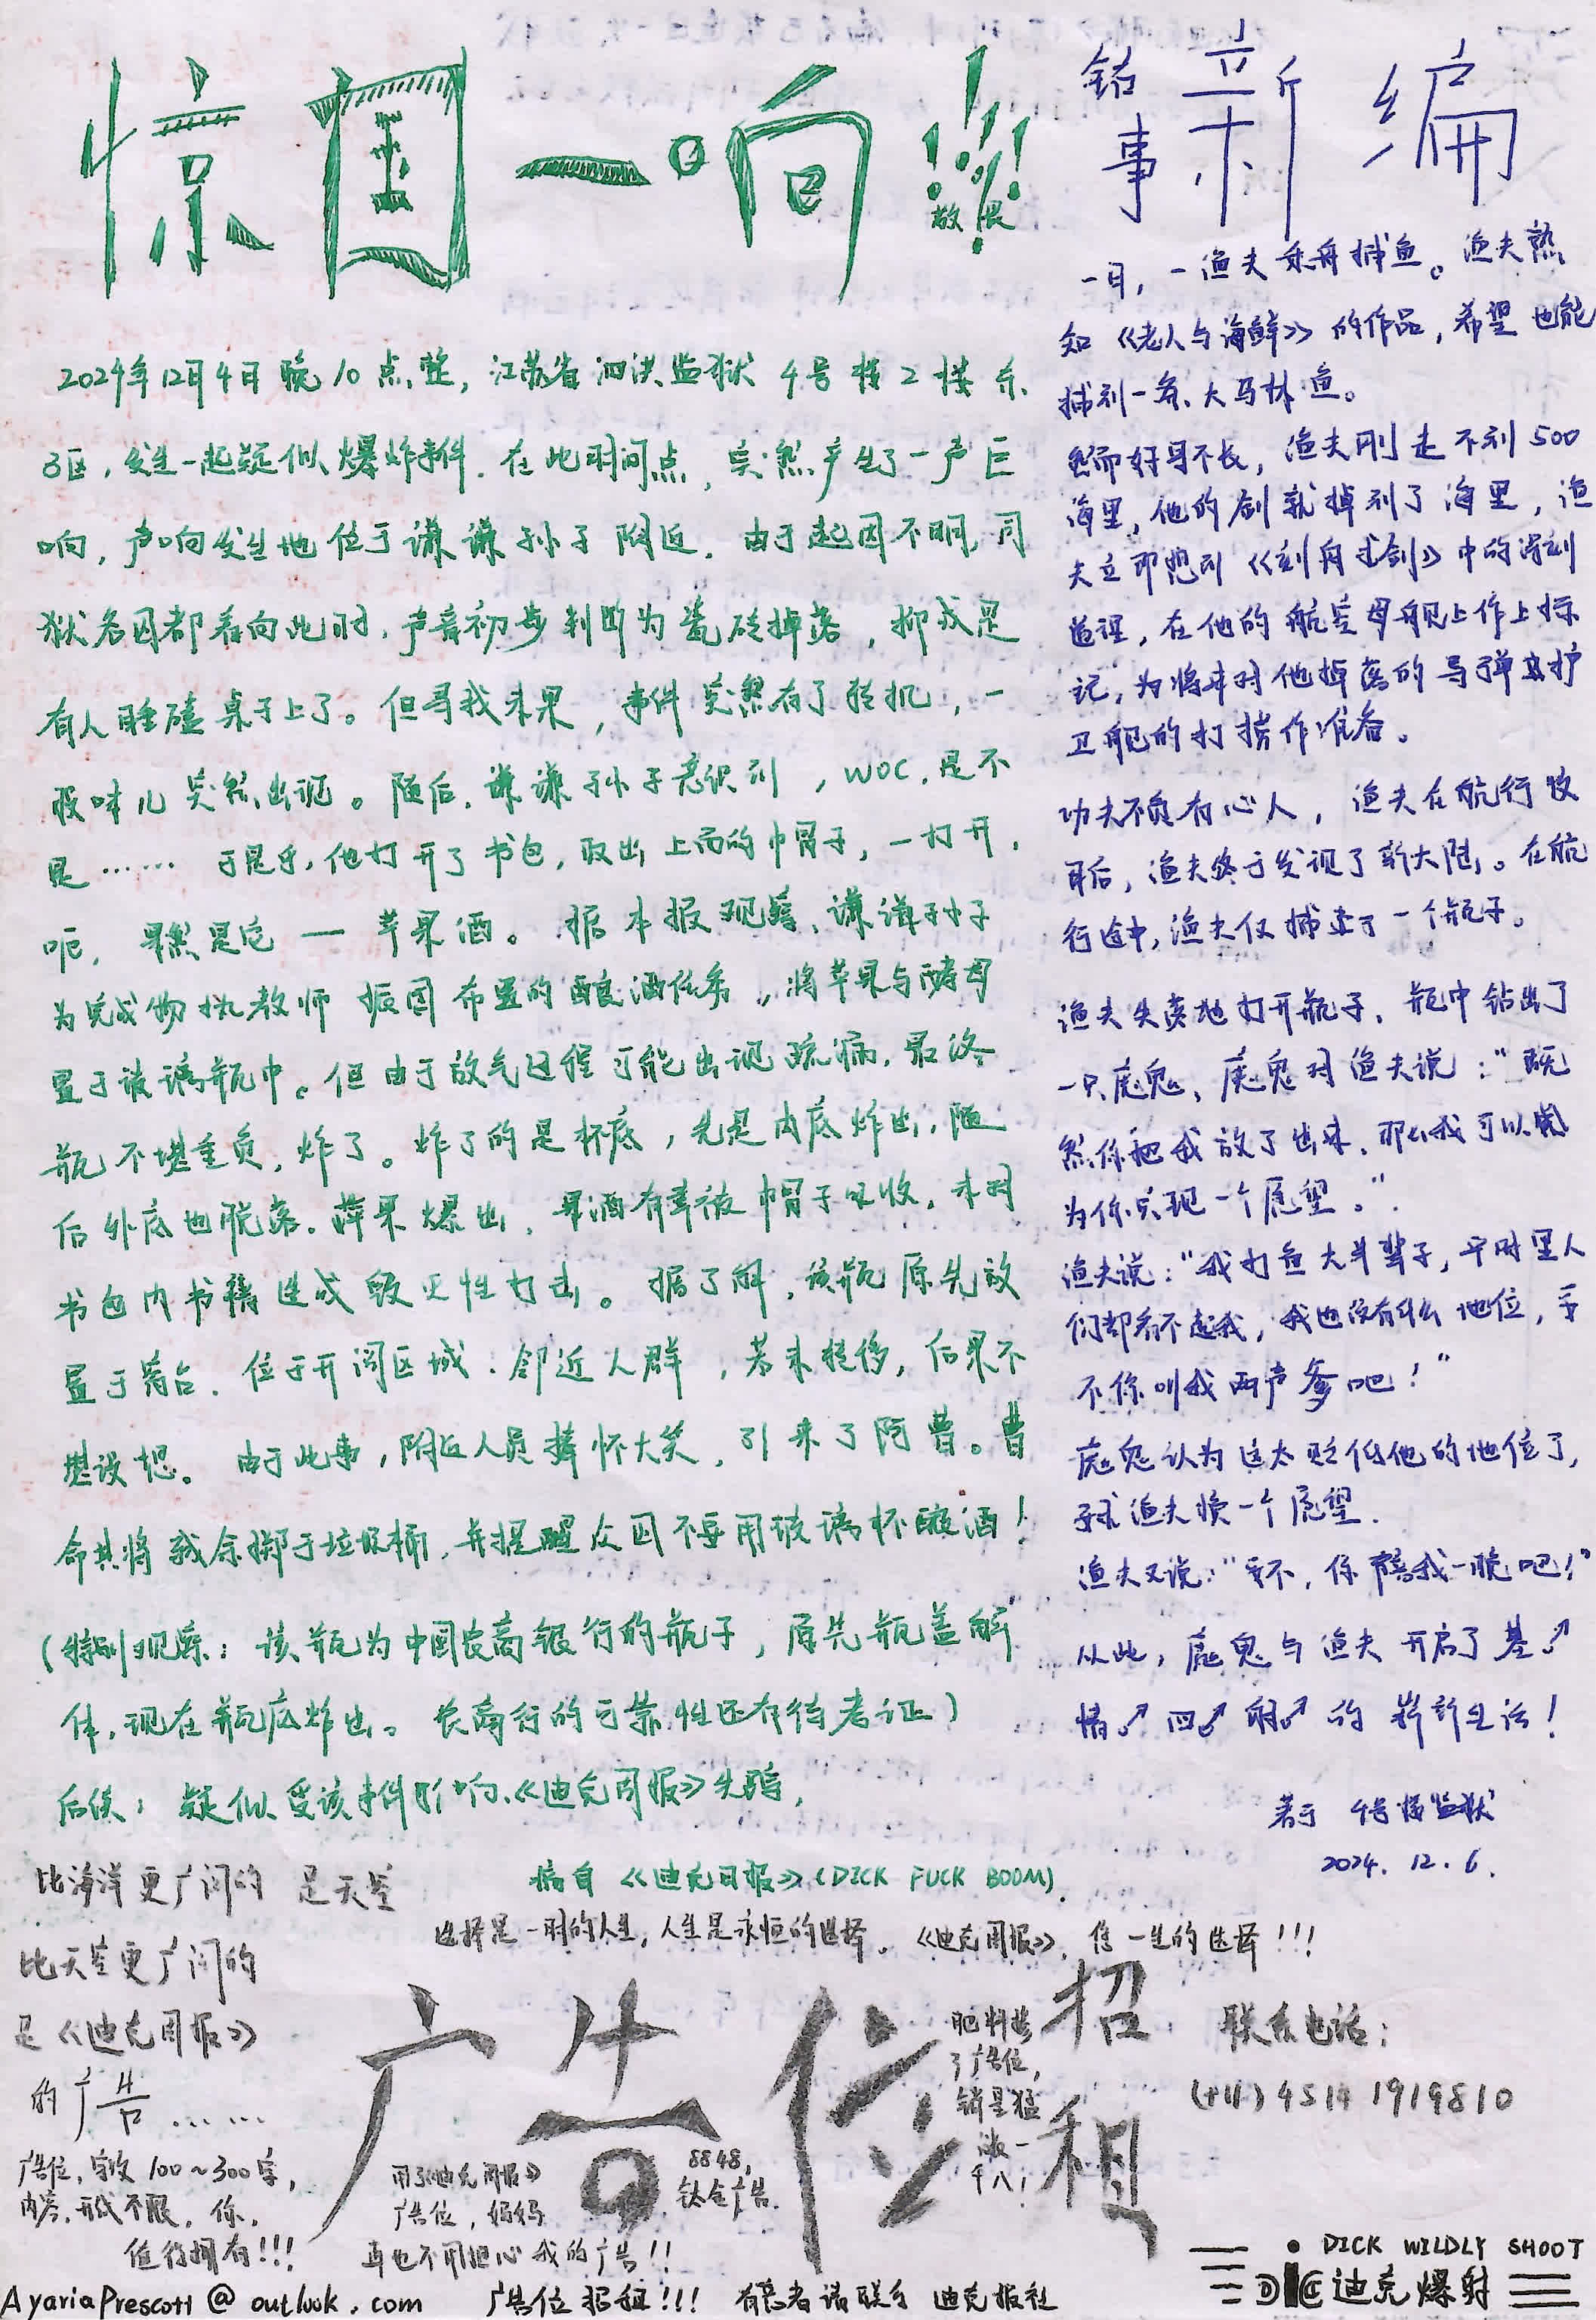 惊国一响!!!
敬畏
2024年12月4日晚10点整,江苏省泗洪监狱4号楼2楼东
3区,发生一起疑似爆炸事件.在此时间点,突然产生了一声巨
响,声响发生地位于谦谦孙子附近.由于起因不明,同
狱各囚都看向此时,声音初步判断为瓷砖掉落,抑或是
有人睡磕桌子上了。但寻找未果,事件突然有了转机,一
股味儿突然出现。随后,谦谦孙子意识到,WOC,是不
是……于是乎,他打开了书包,取出上面的帽子,一打开,
呃,果然是它—苹果酒。据本报观察,谦谦孙子
为完成物执教师振国布置的酿酒任务,将苹果与酵母
置于玻璃瓶中。但由于放气过程可能出现疏漏,最终
瓶不堪重负,炸了。炸了的是杯底,先是内底炸出,随
后外底也脱落.苹果爆出,果酒有幸被帽子吸收,未对
书包内书籍造成毁灭性打击。据了解,该瓶原先放
置于窗台.位于开阔区域.邻近人群,若未转移,后果不
堪设想。由于此事,附近人员捧怀大笑,引来了阿曹。曹
命其将残余掷于垃圾桶,并提醒众囚不要用玻璃杯酿酒!
(特别观察:该瓶为中国农商银行的瓶子,原先瓶盖解
体,现在瓶底炸出。农商行的可靠性还有待考证)
后续:疑似受该事件影响,《迪克周报》失踪,
摘自《迪克日报》(DICK FUCK BOOM).
铭事新编
一日,一渔夫乘舟捕鱼。渔夫熟
知《老人与海鲜》的作品,希望也能
捕到一条大马林鱼。
然而好景不长,渔夫刚走不到500
海里,他的剑就掉到了海里,渔
夫立即想到《刻舟求剑》中的深刻
道理,在他的航空母舰上作上标
记,为将来对他掉落的导弹及护
卫舰的打捞作准备。
功夫不负有心人,渔夫在航行数
月后,渔夫终于发现了新大陆。在航
行途中,渔夫仅捕捞了一个瓶子。
渔夫失落地打开瓶子,瓶中钻出了
一只魔鬼,魔鬼对渔夫说:“既
然你把我放了出来,那么我可以
为你实现一个愿望。”
渔夫说:“我打鱼大半辈子,平时里人
们都看不起我,我也没有什么地位,要
不你叫我两声爹吧!”
魔鬼认为这太贬低他的地位了,
要求渔夫换一个愿望.
渔夫又说:“要不,你陪我一晚吧!”
从此,魔鬼与渔夫开启了基♂
情♂四♂射♂的崭新生活!
著于4号楼监狱
2024.12.6.
选择是一时的人生,人生是永恒的选择.《迪克周报》,您一生的选择!!!
比海洋更广阔的是天空
比天空更广阔的
是《迪克周报》
的广告……
广告位招租
肥料搭
了广告位,
销量猛
涨一
千八!
联系电话:
(+11) 4514 1919810
广告位,字数100~300字,
内容,形式不限,你,
值得拥有!!!
用了《迪克周报》
广告位,妈妈
再也不用担心我的广告!!
8848,
钛金广告.
AyariaPrescott@outlook.com
广告位招租!!!有意者请联系迪克报社
DICK WILDLY SHOOT
DIC迪克爆射